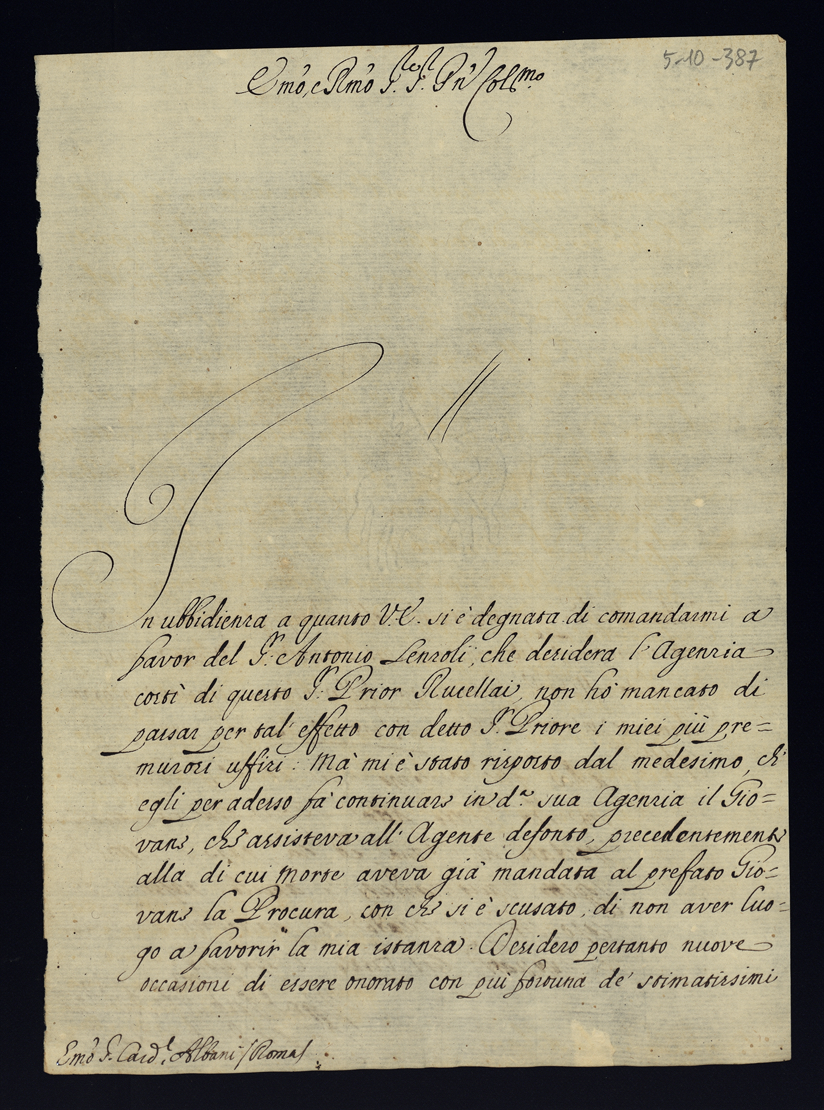 5-10-387
Emo, e Rmo Sr. Sr. Pn Colmo
In ubbidienza a quanto V.E. si è degnata di comandarmi a
favor del Sr. Antonio Lenzoli, che desidera l'Agenzia
costì di questo Sr. Prior Rucellai, non hò mancato di
passar per tal' effetto con detto Sr. Priore i miei più pre=
murosi uffizi: Mà mi è stato risposto dal medesimo, ch'
egli per adesso fà continuare in da. sua Agenzia il Gio=
vane, che assisteva all' Agente defonto, precedentemente
alla di cui Morte aveva già mandata al prefato Gio=
vane la Procura, con che si è scusato, di non aver luo=
go a favorir la mia istanza. Desidero pertanto nuove
occasioni di essere onorato con più fortuna de' stimatissimi
Emo Sr. Cardl. Albani /Roma/